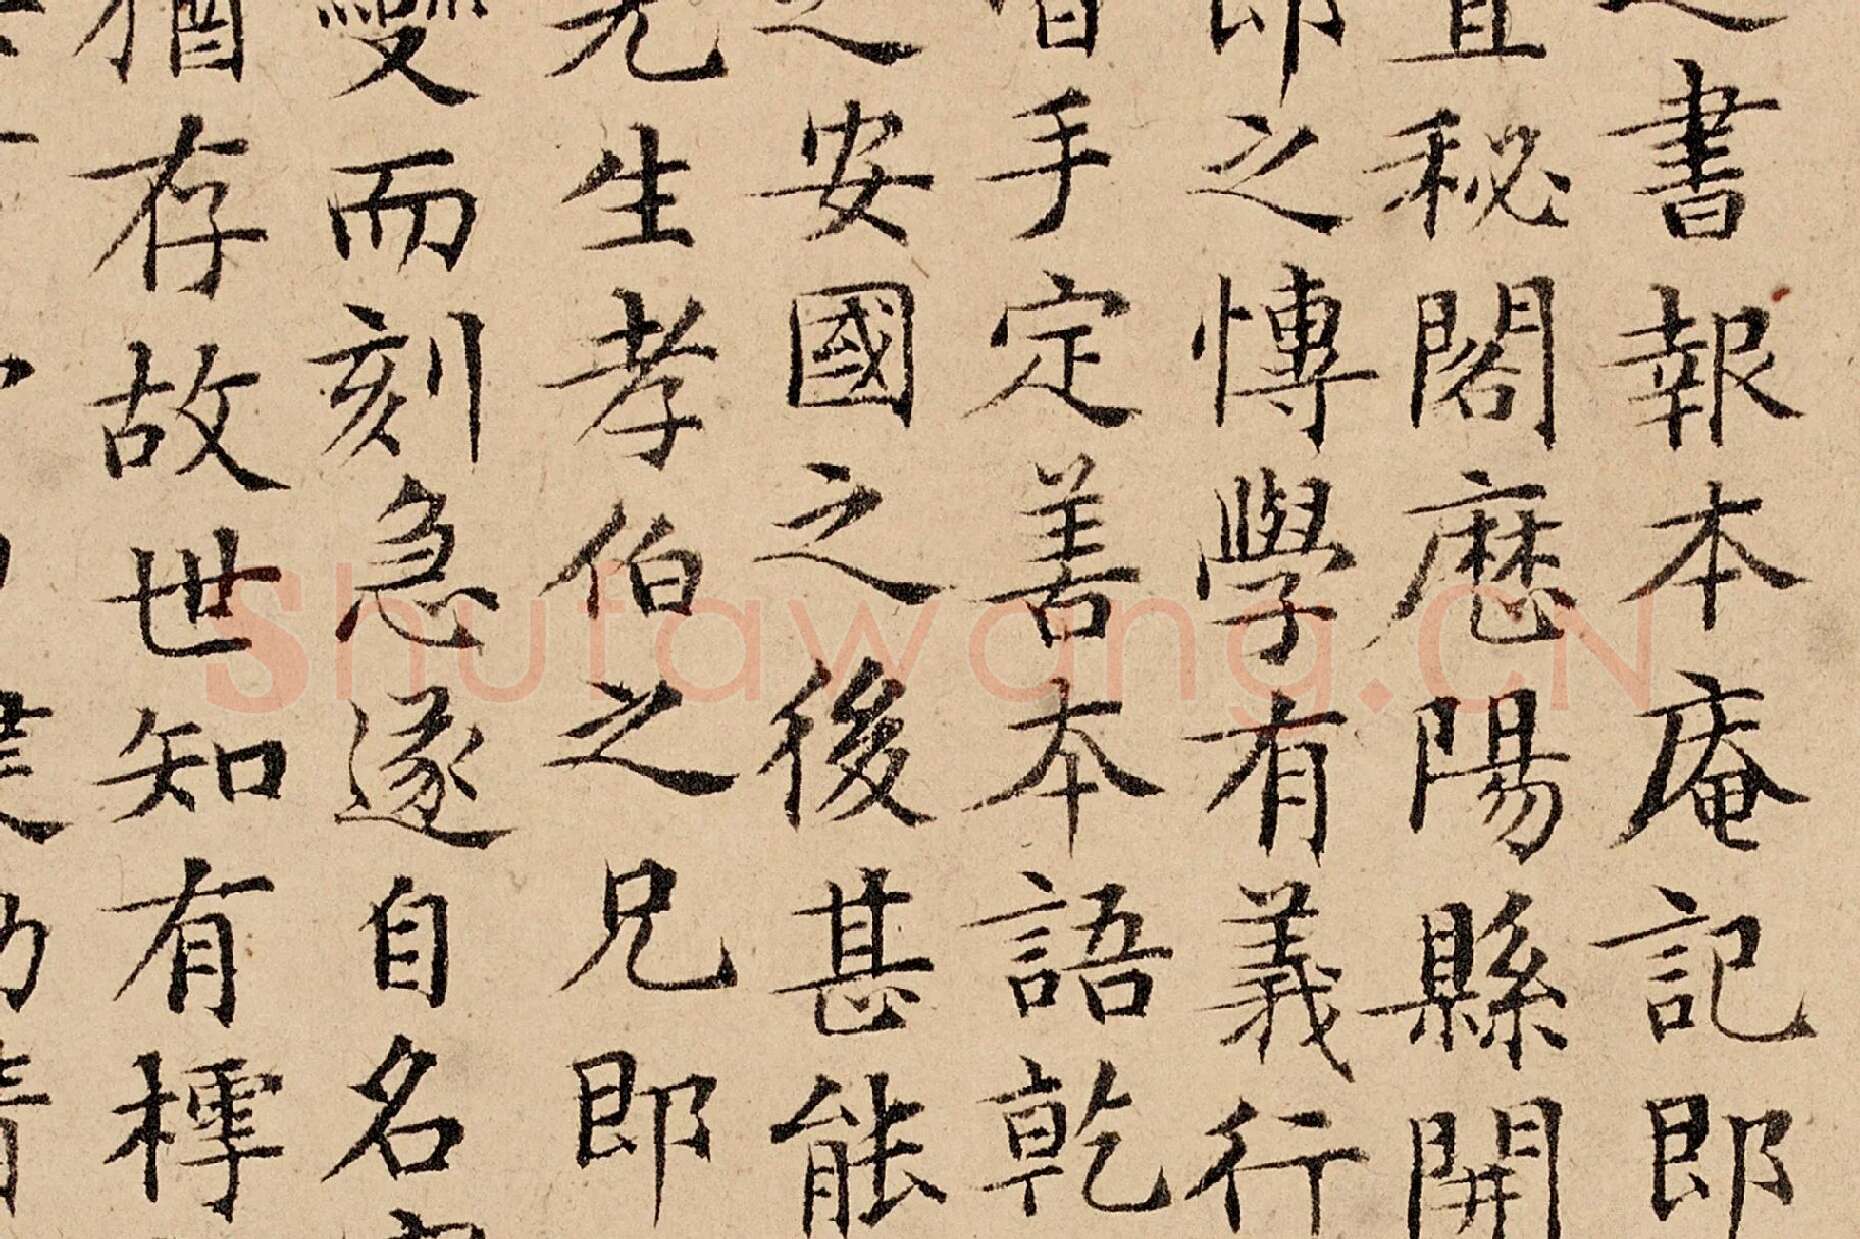 之書報本庵記即
直秘閣歷陽縣開
即之愽學有義行
昔手定善本語乾
之安國之後甚能
先生孝伯之兄即
變而刻急遂自名
猶存故世知有樗
Shufawang.CN